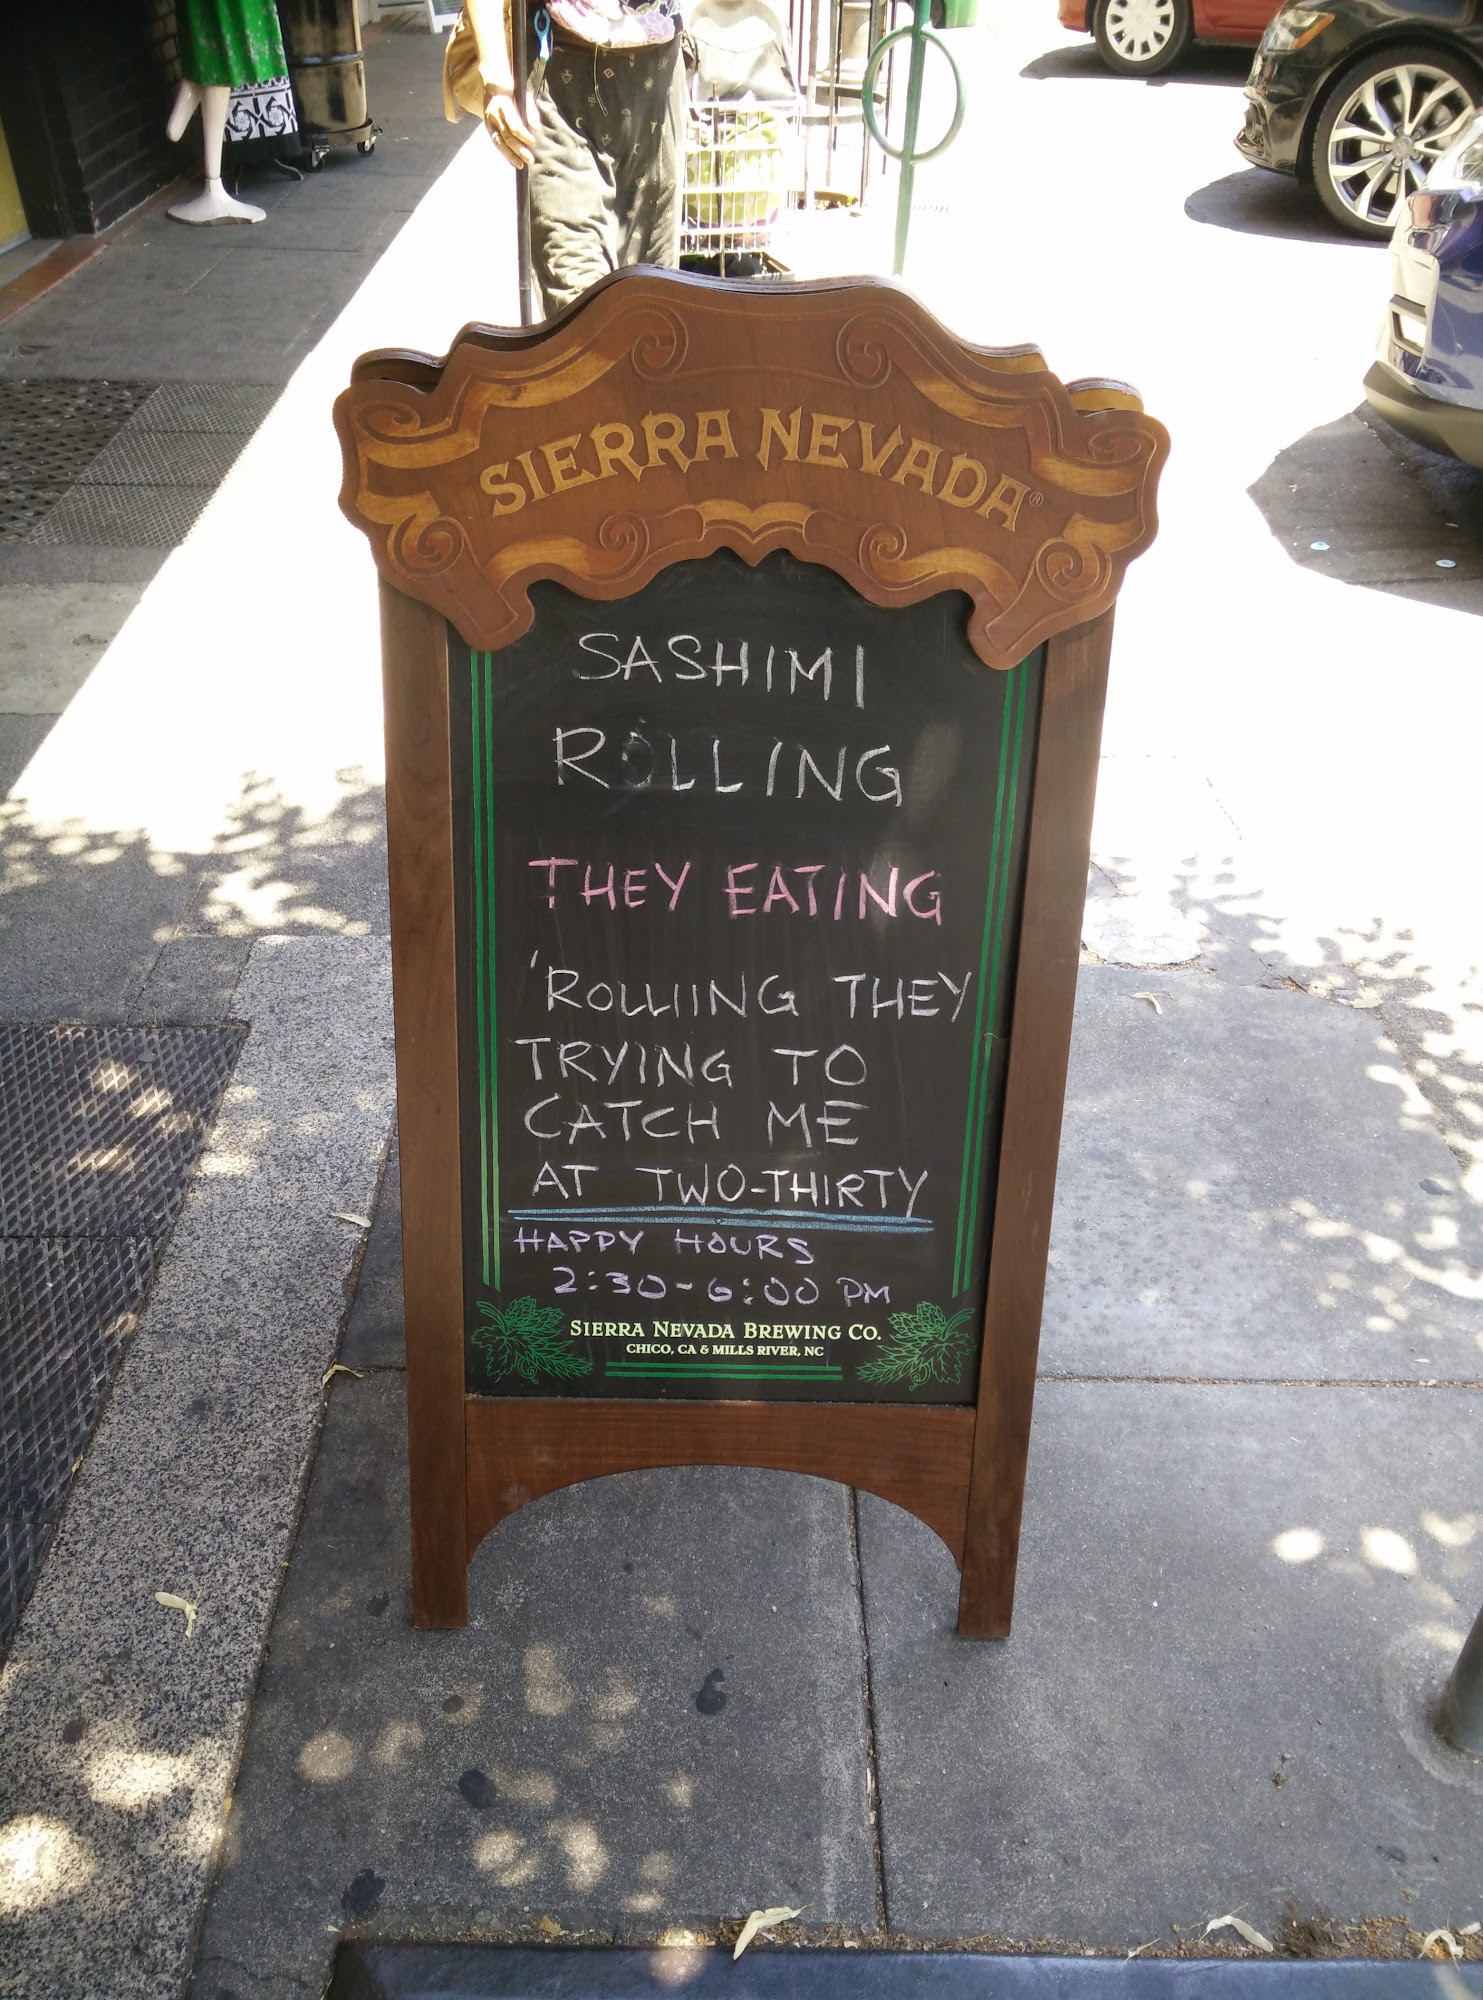 SIERRA NEVADA®
SASHIMI
ROLLING
THEY EATING
'ROLLIING THEY
TRYING TO
CATCH ME
AT TWO-THIRTY
HAPPY HOURS
2:30-6:00 PM
SIERRA NEVADA BREWING CO.
CHICO, CA & MILLS RIVER, NC